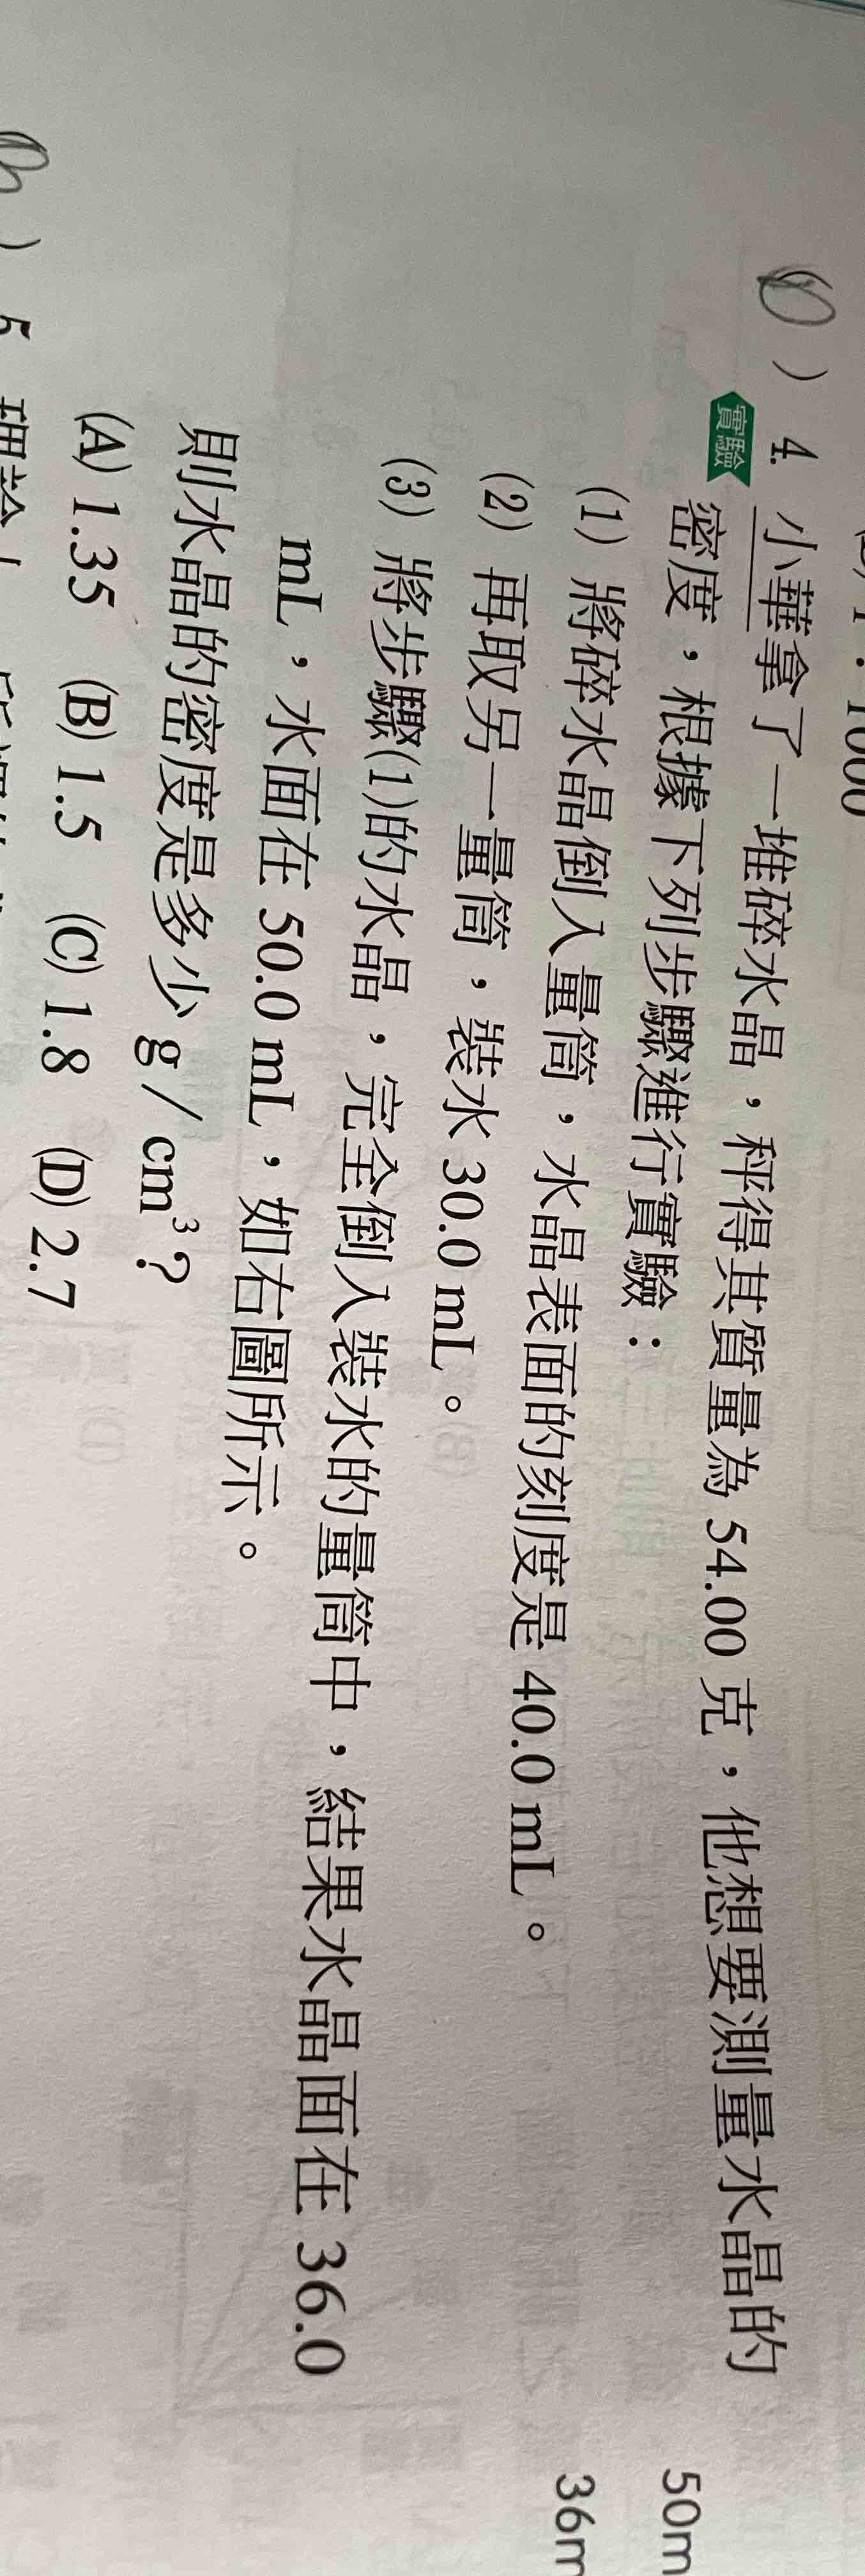 : 1000
) 4. 小華拿了一堆碎水晶，秤得其質量為 54.00 克，他想要測量水晶的
實驗 密度，根據下列步驟進行實驗：
(1) 將碎水晶倒入量筒，水晶表面的刻度是 40.0 mL。
(2) 再取另一量筒，裝水 30.0 mL。
(3) 將步驟(1)的水晶，完全倒入裝水的量筒中，結果水晶面在 36.0
mL，水面在 50.0 mL，如右圖所示。
則水晶的密度是多少 g / cm³？
(A) 1.35 (B) 1.5 (C) 1.8 (D) 2.7
) 5 理論上
50m
36m